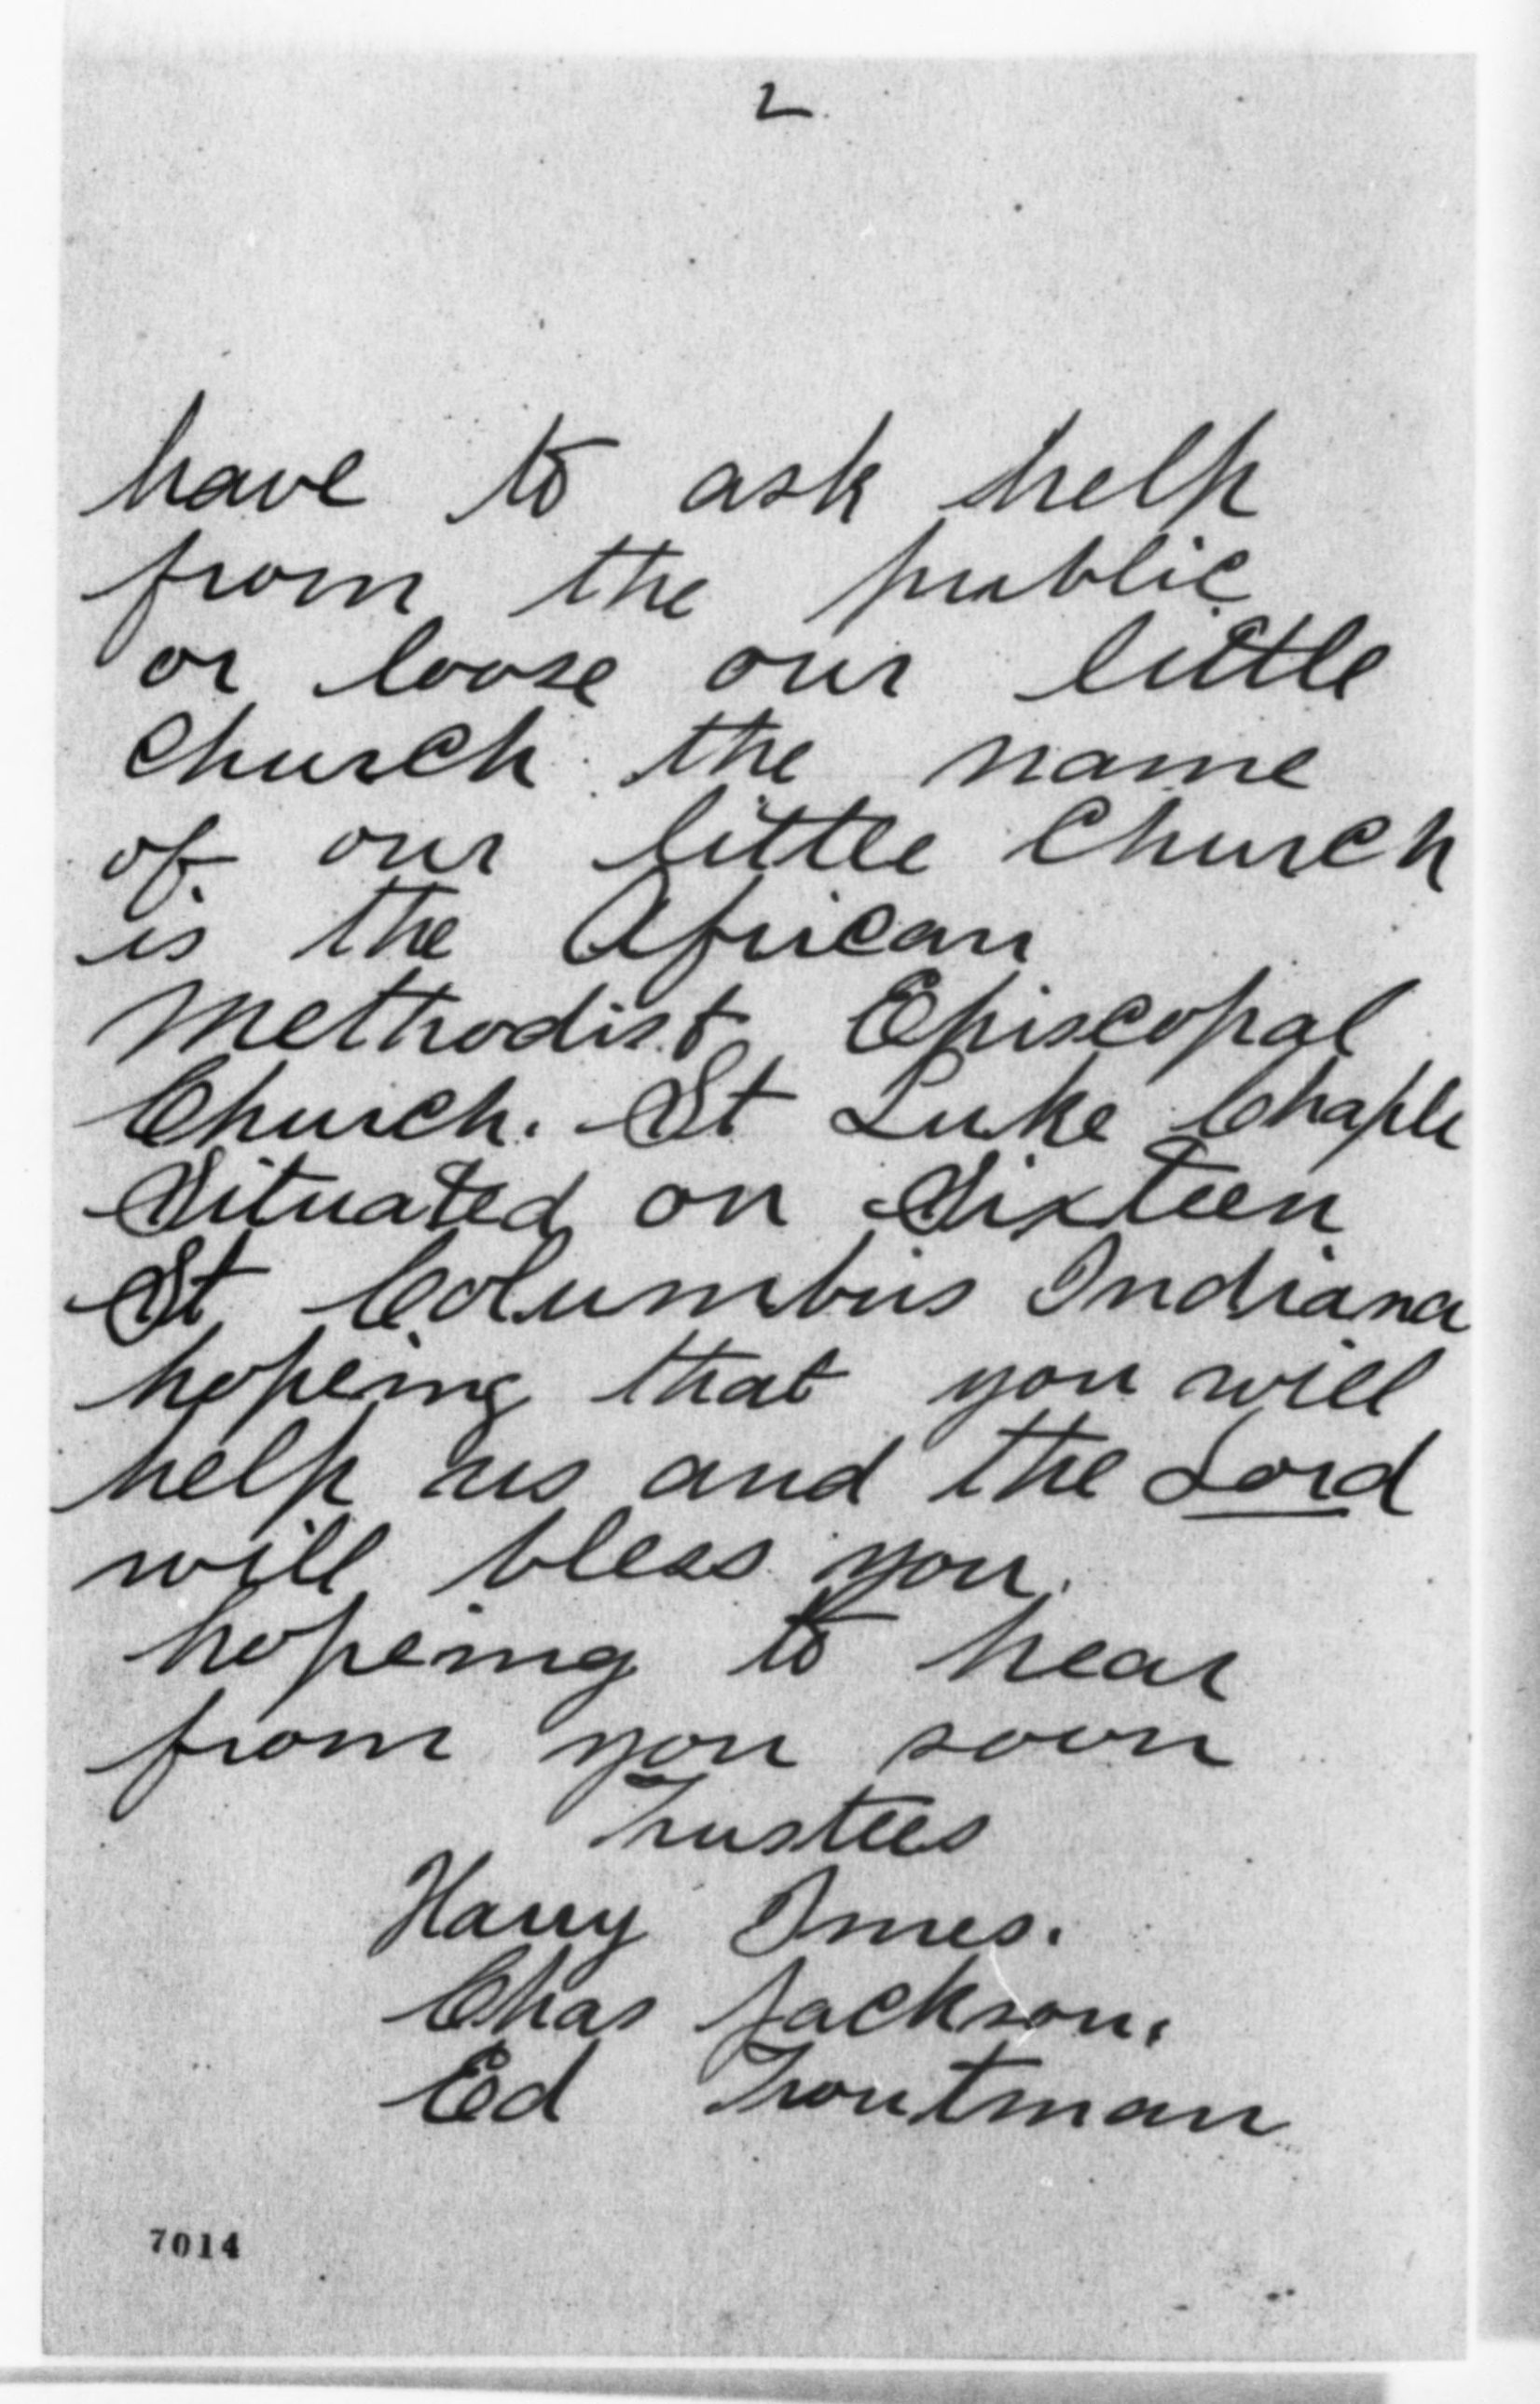 2
have to ask help
from the public
or loose our little
church the name
of our little church
is the African
Methodist Episcopal
Church. St Luke Chaple
Situated on Sixteen
St Columbus Indiana
hopeing that you will
help us and the Lord
will bless you.
hopeing to hear
from you soon
Trustees
Harry Imes.
Chas Jackson,
Ed Troutman
7014